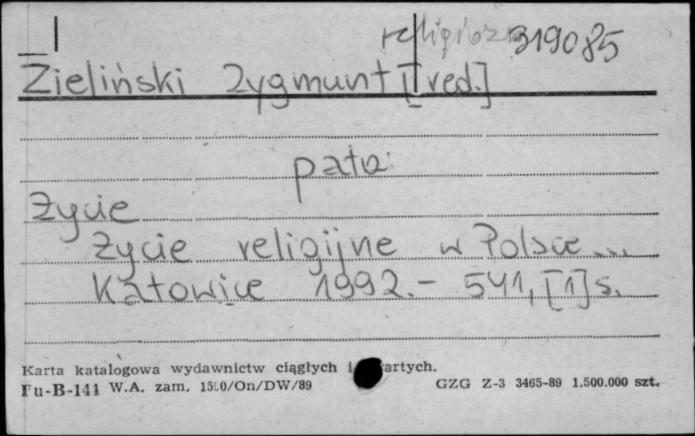 319085
Zieliński Zygmunt [red.]
patrz:
Życie
Życie religijne w Polsce...
Katowice 1992.- 541, [1] s.
Karta katalogowa wydawnictw ciągłych i
Fu-B-141 W.A. zam. 1500/On/DW/89 GZG Z-3 3465-89 1.500.000 szt.